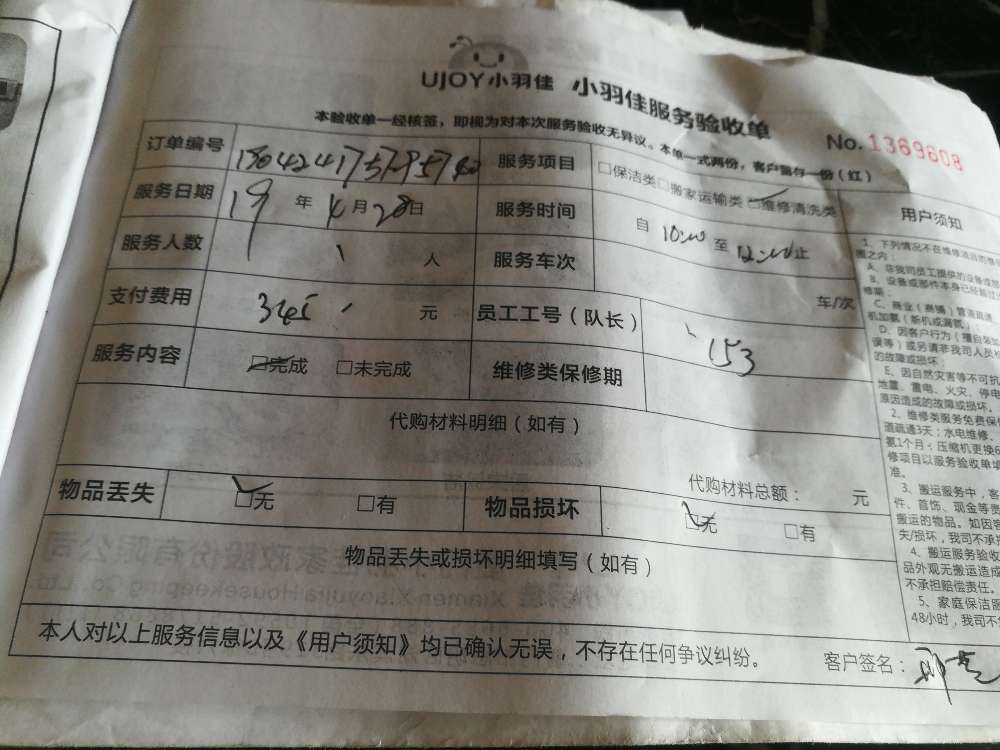 UJOY小羽佳 小羽佳服务验收单
本验收单一经核签，即视为对本次服务验收无异议。本单一式两份，客户留存一份（红）
No. 1369608
订单编号 服务项目 □保洁类□搬家运输类□维修清洗类
服务日期 19年4月28日 服务时间 自10:00至12:00止
服务人数 1人 服务车次 车/次
支付费用 345元 员工工号（队长） 153
服务内容 □完成 □未完成 维修类保修期
代购材料明细（如有）
代购材料总额： 元
物品丢失 □无 □有 物品损坏 □无 □有
物品丢失或损坏明细填写（如有）
本人对以上服务信息以及《用户须知》均已确认无误，不存在任何争议纠纷。
客户签名：
用户须知
1、下列情况不在维修项目的维
圈之内：
A、非我司员工提供的设备或
B、设备或部件本身已经超过
修期
C、商业（商铺）管道疏通
机加氨（新机或漏氨）；
D、因客户行为（擅自装
误等）或另请非我司人员
的故障或损坏。
E、因自然灾害等不可抗
地震、雷电、火灾、停电
原因造成的故障或损坏。
2、维修类服务免费保
道疏通3天；水电维修、
氨1个月；压缩机更换6
修项目以服务验收单填
准。
3、搬运服务中，客
件、首饰、现金等贵
搬运的物品。如因客
失/损坏，我司不承
4、搬运服务验收
品外观无搬运造成
不承担赔偿责任。
5、家庭保洁服
48小时，我司不